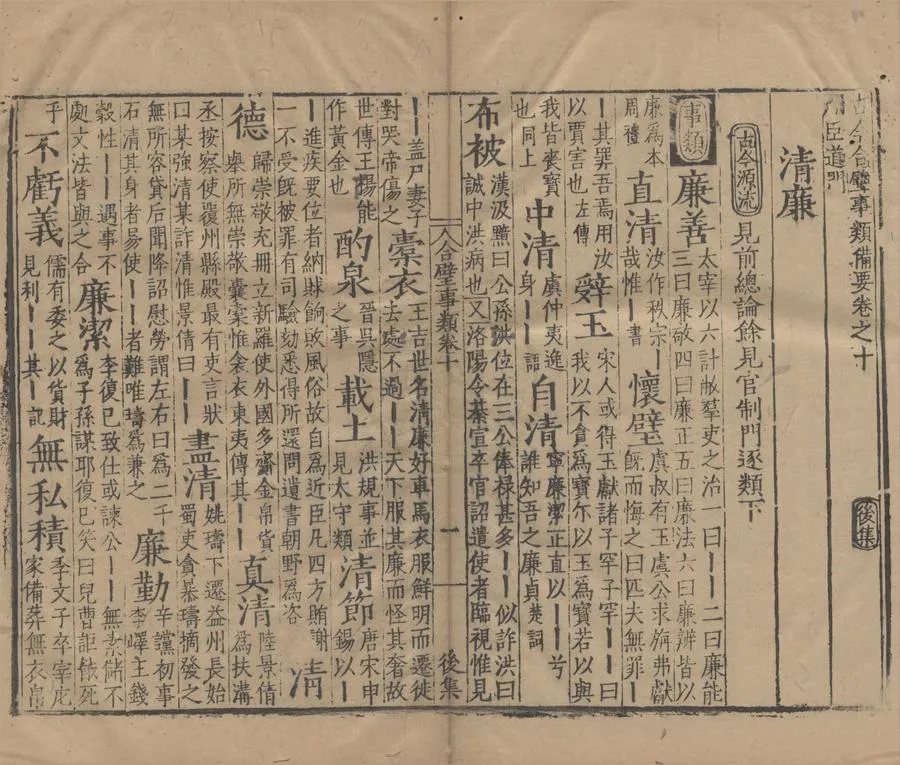 古今合璧事類備要卷之十 後集
臣道門
清廉
古今源流 見前總論餘見官制門逐類下
事類 廉善 太宰以六計敝羣吏之治一曰丨丨二曰廉能
三曰廉敬四曰廉正五曰廉法六曰廉辨皆以
廉爲本
周禮
直清 汝作秩宗丨
哉惟丨書
懷璧 虞叔有玉虞公求旃弗獻
既而悔之曰匹夫無罪丨
丨其罪吾焉用汝
以賈害也左傳
辤玉 宋人或得玉獻諸子罕子罕丨曰
我以不貪爲寶尓以玉爲寶若以與
我皆喪寶
也同上
中清 虞仲夷逸
身丨丨語
自清 寧廉潔正直以丨丨兮
誰知吾之廉貞楚詞
布被 漢汲黯曰公孫洪位在三公俸禄甚多丨丨似詐洪曰
誠中洪病也又洛陽令綦宣卒官詔遣使者臨視惟見
合璧事類卷十 一 後集
丨丨盖尸妻子
對哭帝傷之
橐衣 王吉世名清廉好車馬衣服鮮明而遷徙
去處不過丨丨天下服其廉而怪其奢故
世傳王楊能
作黃金也
酌泉 晉吳隱
之事
載土 洪規事並
見太守類
清節 唐宋申
錫以丨
丨進疾要位者納賕餉敗風俗故自爲近臣凡四方賄謝
一不受既被罪有司驗劾悉得所還問遺書朝野爲咨
清
德 歸崇敬充冊立新羅使外國多齎金帛貨
舉所無崇敬囊橐惟衾衣東夷傳其丨丨
真清 陸景倩
爲扶溝
丞按察使覆州縣殿最有吏言狀
曰某強清某詐清惟景倩曰丨丨
晝清 姚璹下遷益州長始
蜀吏貪暴璹擿發之
無所容貸后聞降詔慰勞謂左右曰爲二千
石清其身者易使丨丨者難唯璹爲兼之
廉勤 辛讜初事
李嶧主錢
穀性丨丨遇事不
處文法皆與之合
廉潔 李復已致仕或諫公丨丨無素儲不
爲子孫謀耶復已笑曰兒曹詎餓死
乎 不虧義 儒有委之以貨財
見利丨丨其丨記
無私積 季文子卒宰庀
家備葬無衣帛